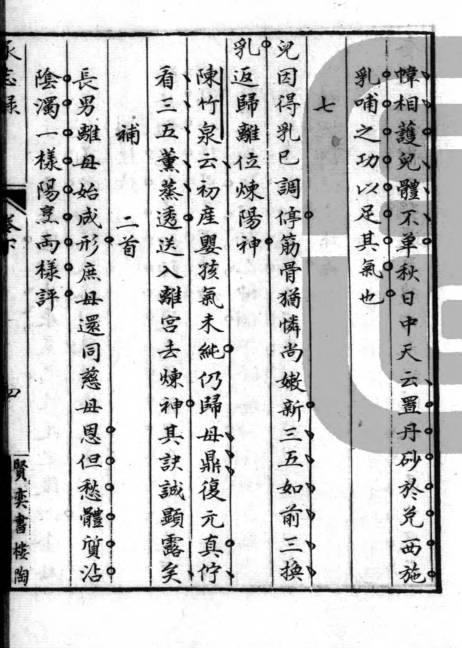 幃相護兒體不單秋日中天云置丹砂於兌西施
乳哺之功以足其氣也
七
兒因得乳已調停筋骨猶憐尚嫩新三五如前三換
乳返歸離位煉陽神
陳竹泉云初産嬰孩氣未純仍歸母鼎復元真佇
看三五薰蒸透送入離宮去煉神其訣誠顯露矣
補 二首
長男離母始成形庶母還同慈母恩但愁體質沾
陰濁一樣陽烹兩樣評
承志録
卷下
四
賢奕書樓陶